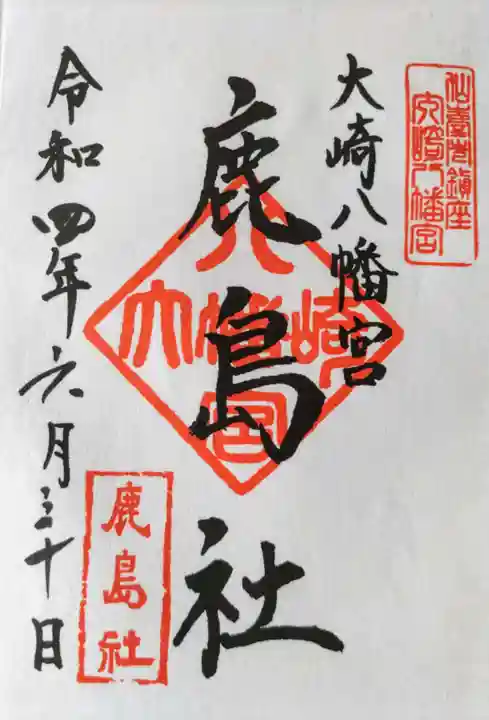 仙臺市鎮座
大崎八幡宮
大崎八幡宮
鹿島社
大崎八幡宮
鹿島社
令和四年六月三十日